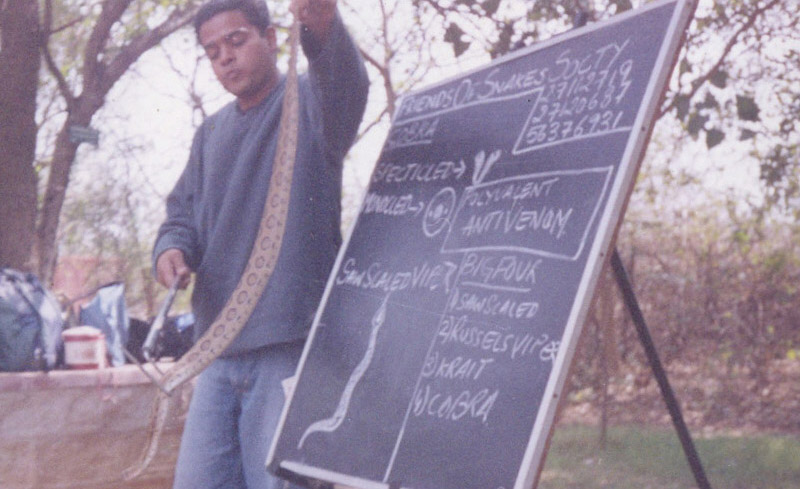 FRIENDS OF SNAKES SOCTY
COBRA
SPECTICLED→
MONOCLED→
POLYVALENT
ANTIVENOM
SAW SCALED VIPER
BIG FOUR
1) SAW SCALED
2) RUSSELS VIPER
3) KRAIT
4) COBRA